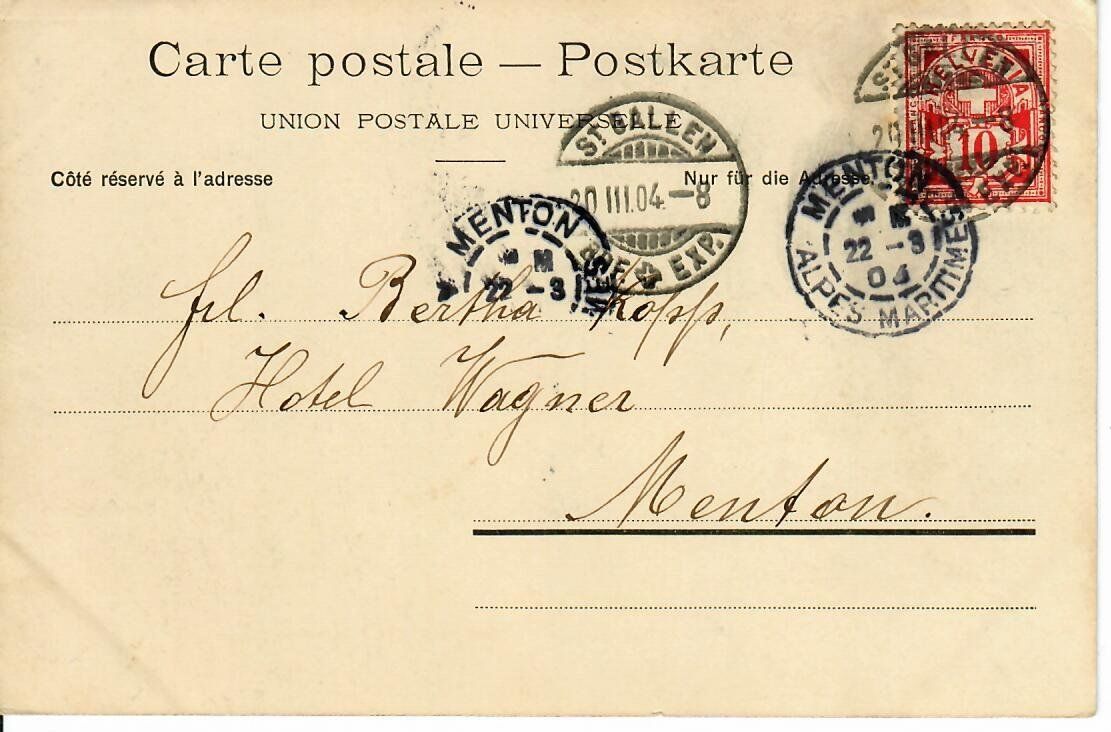 Carte postale — Postkarte
UNION POSTALE UNIVERSELLE
Côté réservé à l'adresse
Nur für die Adresse.
HELVETIA
10
ST. GALLEN
20 III.04.-8
BRF EXP.
MENTON
22 -3
MENTON
22 -3
04
ALPES MARITIMES
Frl. Bertha Kopp,
Hotel Wagner
Menton.